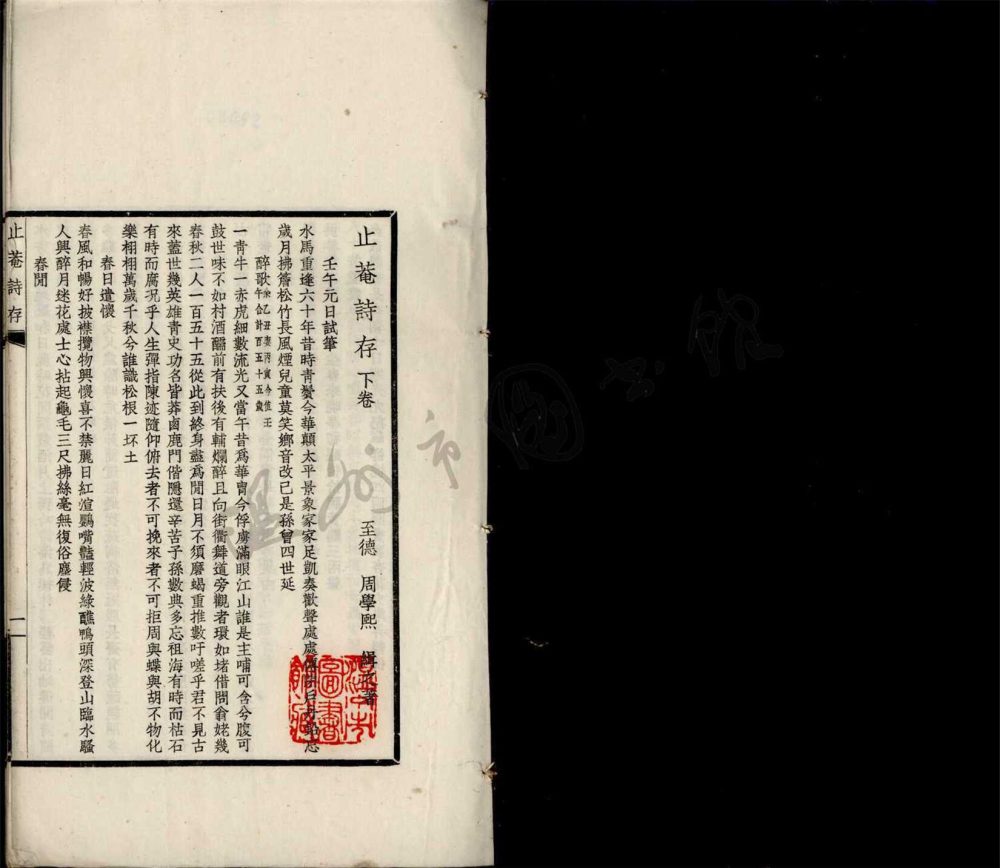 止菴詩存下卷
至德 周學熙 緝之著
壬午元日試筆
水馬重逢六十年昔時青鬢今華顛太平景象家家足凱奏歡聲處處
歲月拂簷松竹長風煙兒童莫笑鄉音改已是孫曾四世延
醉歌
午合計百五十五歲
一青牛一赤虎細數流光又當午昔為華胄今俘虜滿眼江山誰是主哺可含兮腹可
鼓世味不如村酒醹前有扶後有輔爛醉且向街衢舞道旁觀者環如堵借問翁姥幾
春秋二人一百五十五從此到終身盡為閒日月不須磨蝎重推數吁嗟乎君不見古
來蓋世幾英雄青史功名皆莽鹵鹿門偕隱還辛苦子孫數典多忘祖海有時而枯石
有時而腐況乎人生彈指陳迹隨仰俯去者不可挽來者不可拒周與蝶與胡不物化
樂栩栩萬歲千秋兮誰識松根一坏土
春日遣懷
春風和暢好披襟攬物興懷喜不禁麗日紅渲鸚嘴豔輕波綠醮鴨頭深登山臨水騷
人興醉月迷花處士心拈起龜毛三尺拂絲毫無復俗塵侵
春閒
止菴詩存
一
溫州市圖書館